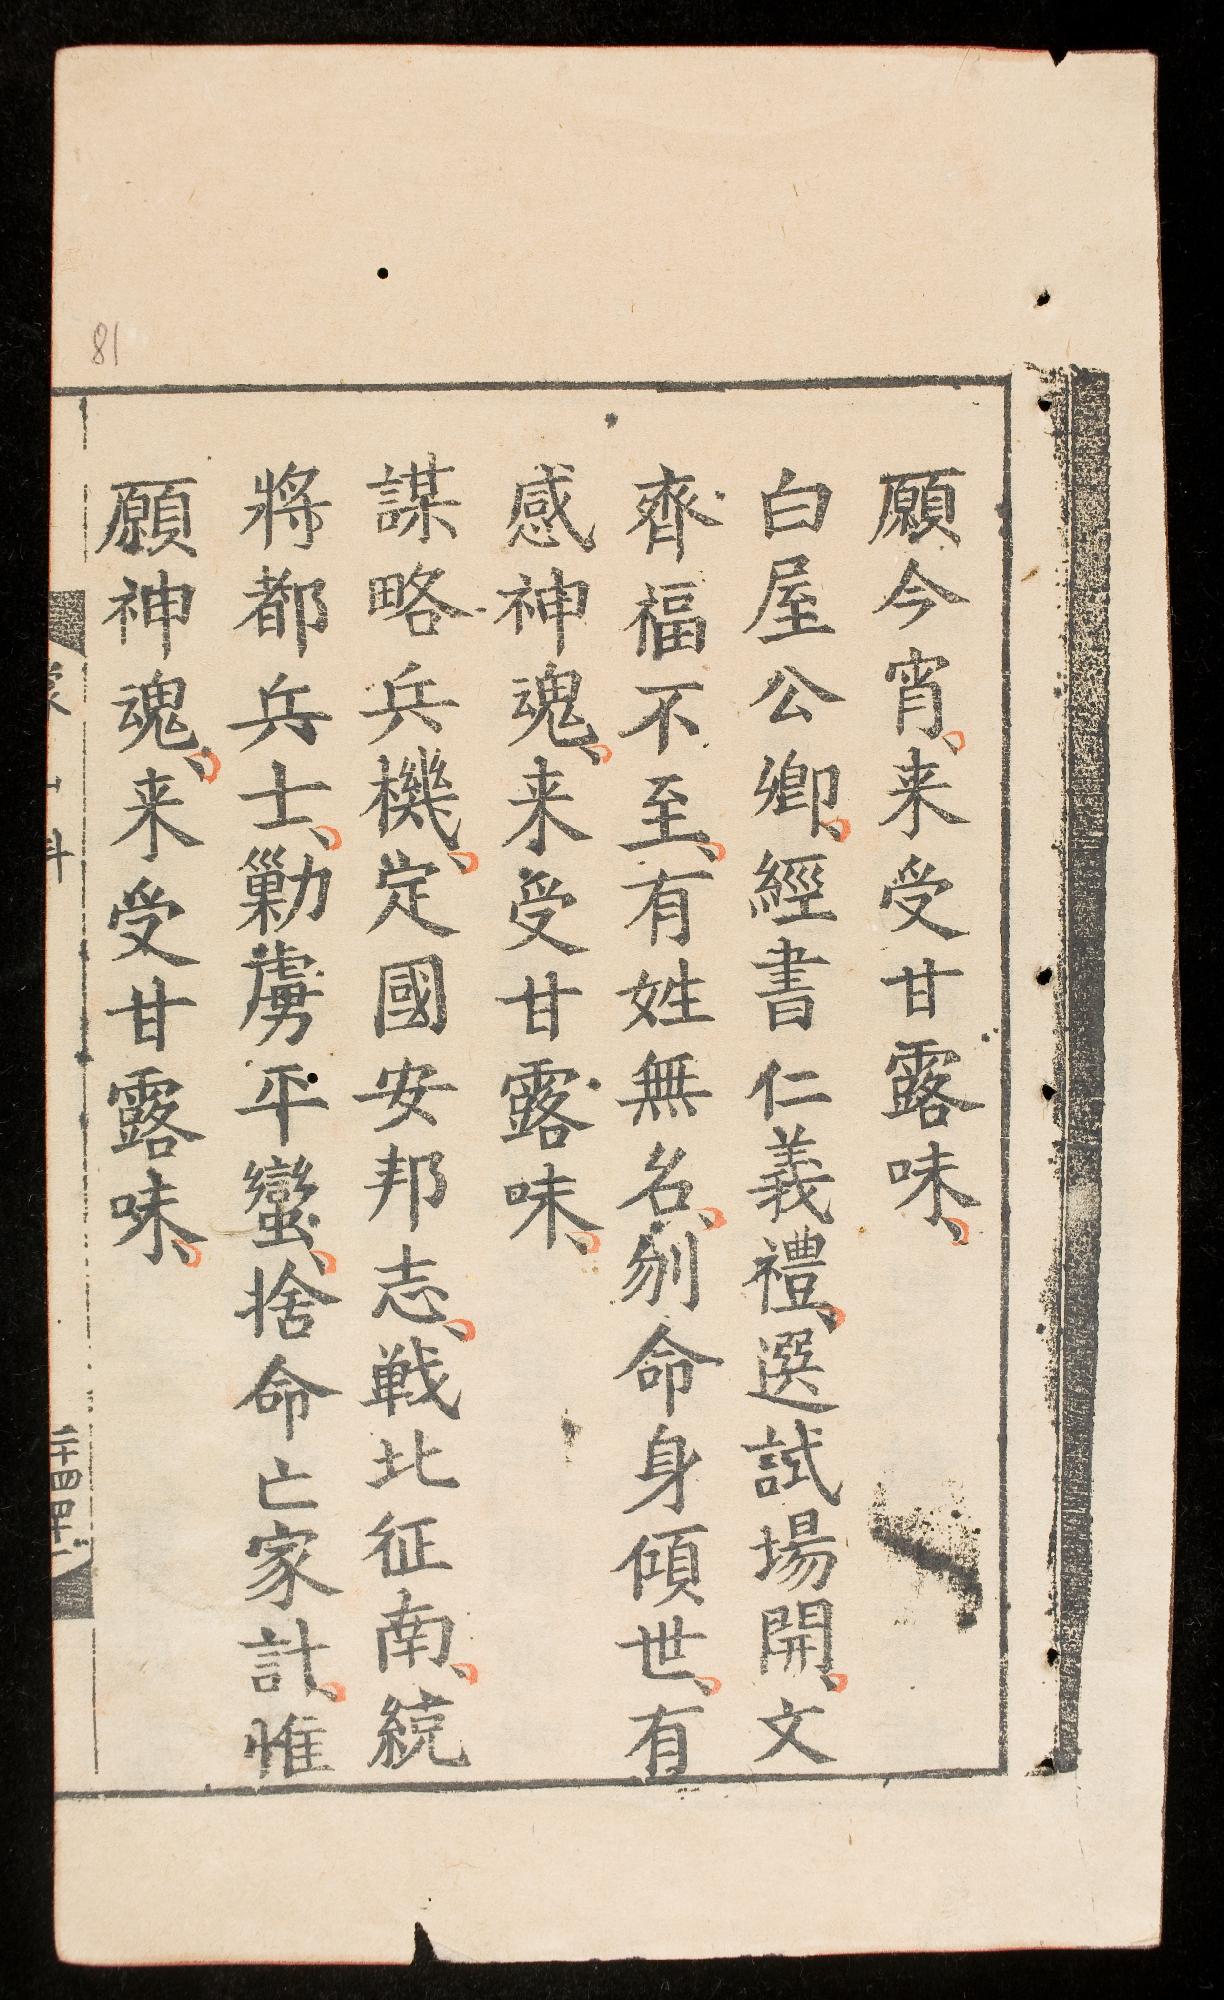 願今宵、来受甘露味、
白屋公卿、經書仁義禮、選試場開、文
齊福不至、有姓無名、刎命身傾世、有
感神魂、来受甘露味、
謀略兵機、定國安邦志、戦北征南、統
將都兵士、勦虜平蠻、捨命亡家計、惟
願神魂、来受甘露味、
81